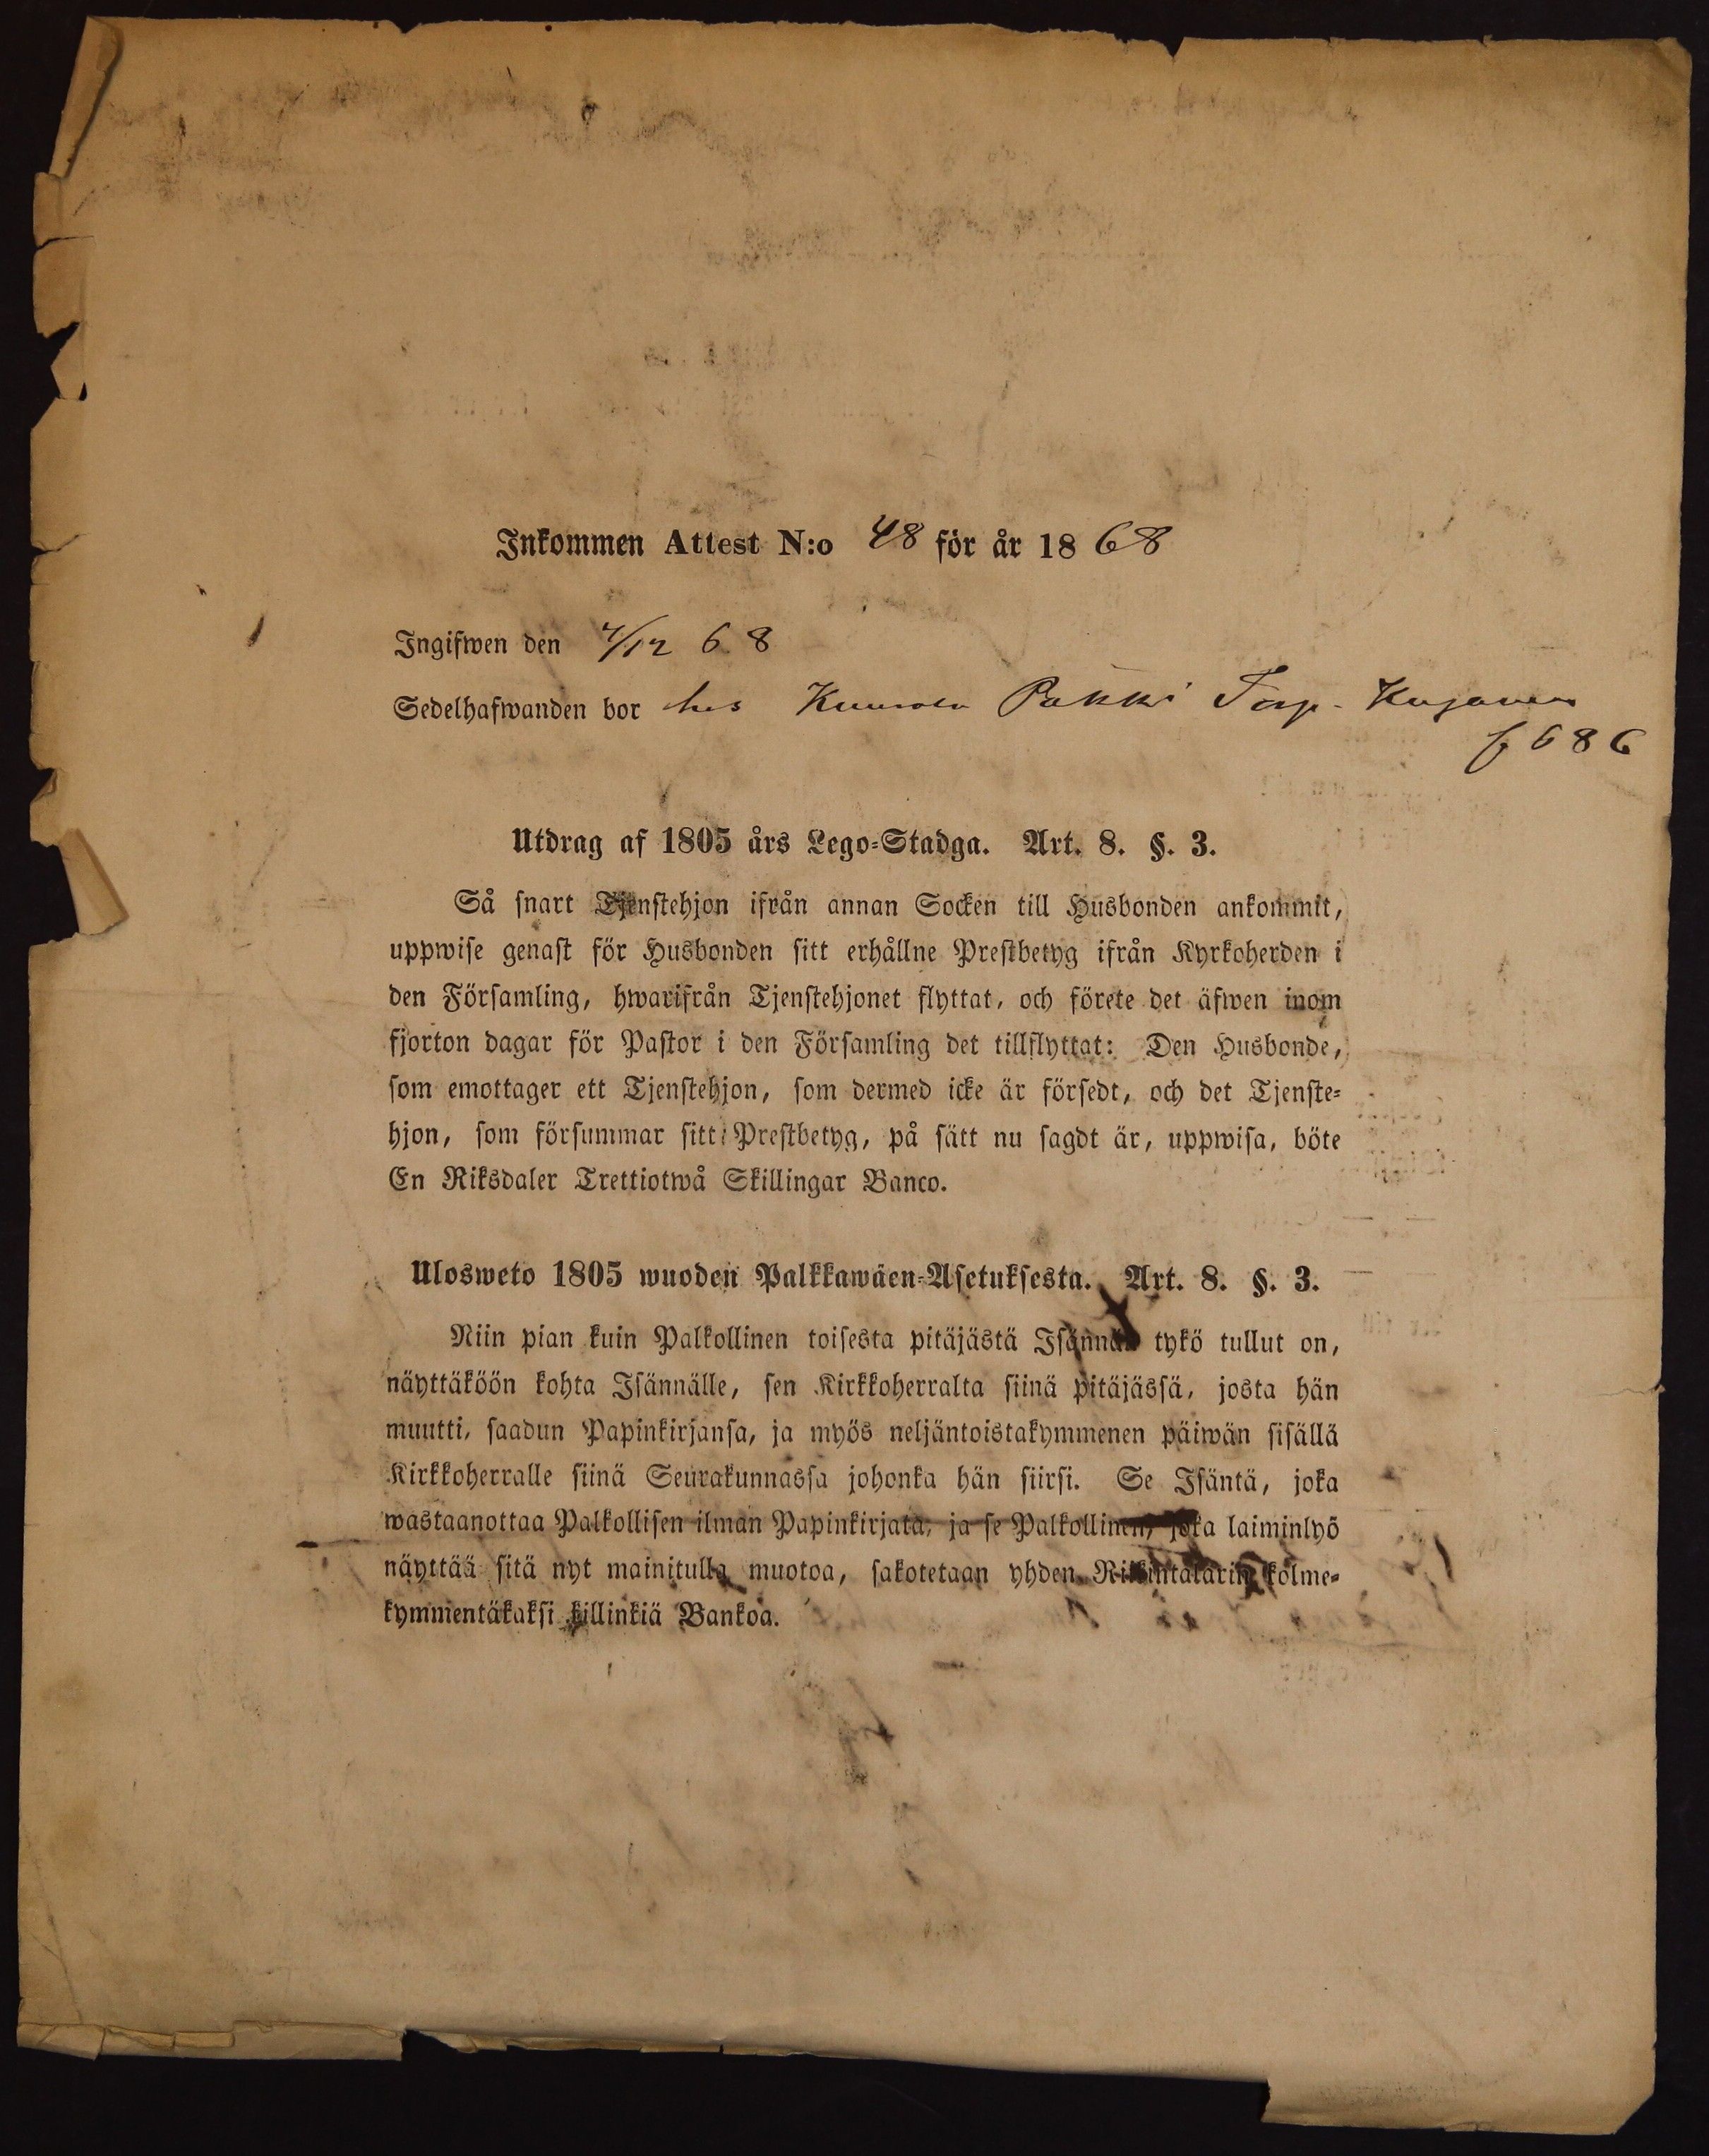 Inkommen Attest N:o 48 för år 1868
Ingifwen den 4/12 68
Sedelhafwanden bor hos Pakki Torp.
f 686
Utdrag af 1805 års Lego-Stadga. Art. 8. §. 3.
Så snart Tjenstehjon ifrån annan Socken till Husbonden ankommit,
uppwise genast för Husbonden sitt erhållne Prestbetyg ifrån Kyrkoherden i
den Församling, hwarifrån Tjenstehjonet flyttat, och förete det äfwen inom
fjorton dagar för Pastor i den Församling det tillflyttat: Den Husbonde,
som emottager ett Tjenstehjon, som dermed icke är försedt, och det Tjenste-
hjon, som försummar sitt Prestbetyg, på sätt nu sagdt är, uppwisa, böte
En Riksdaler Trettiotwå Skillingar Banco.
Ulosweto 1805 wuoden Palkkawäen-Asetuksesta. Art. 8. §. 3.
Niin pian kuin Palkollinen toisesta pitäjästä Isännän tykö tullut on,
näyttäköön kohta Isännälle, sen Kirkkoherralta siinä pitäjässä, josta hän
muutti, saadun Papinkirjansa, ja myös neljäntoistakymmenen päiwän sisällä
Kirkkoherralle siinä Seurakunnassa johonka hän siirsi. Se Isäntä, joka
wastaanottaa Palkollisen ilman Papinkirjata, ja se Palkollinen, joka laiminlyö
näyttää sitä nyt mainitulla muotoa, sakotetaan yhden Riikintalarin kolme-
kymmentäkaksi killinkiä Bankoa.